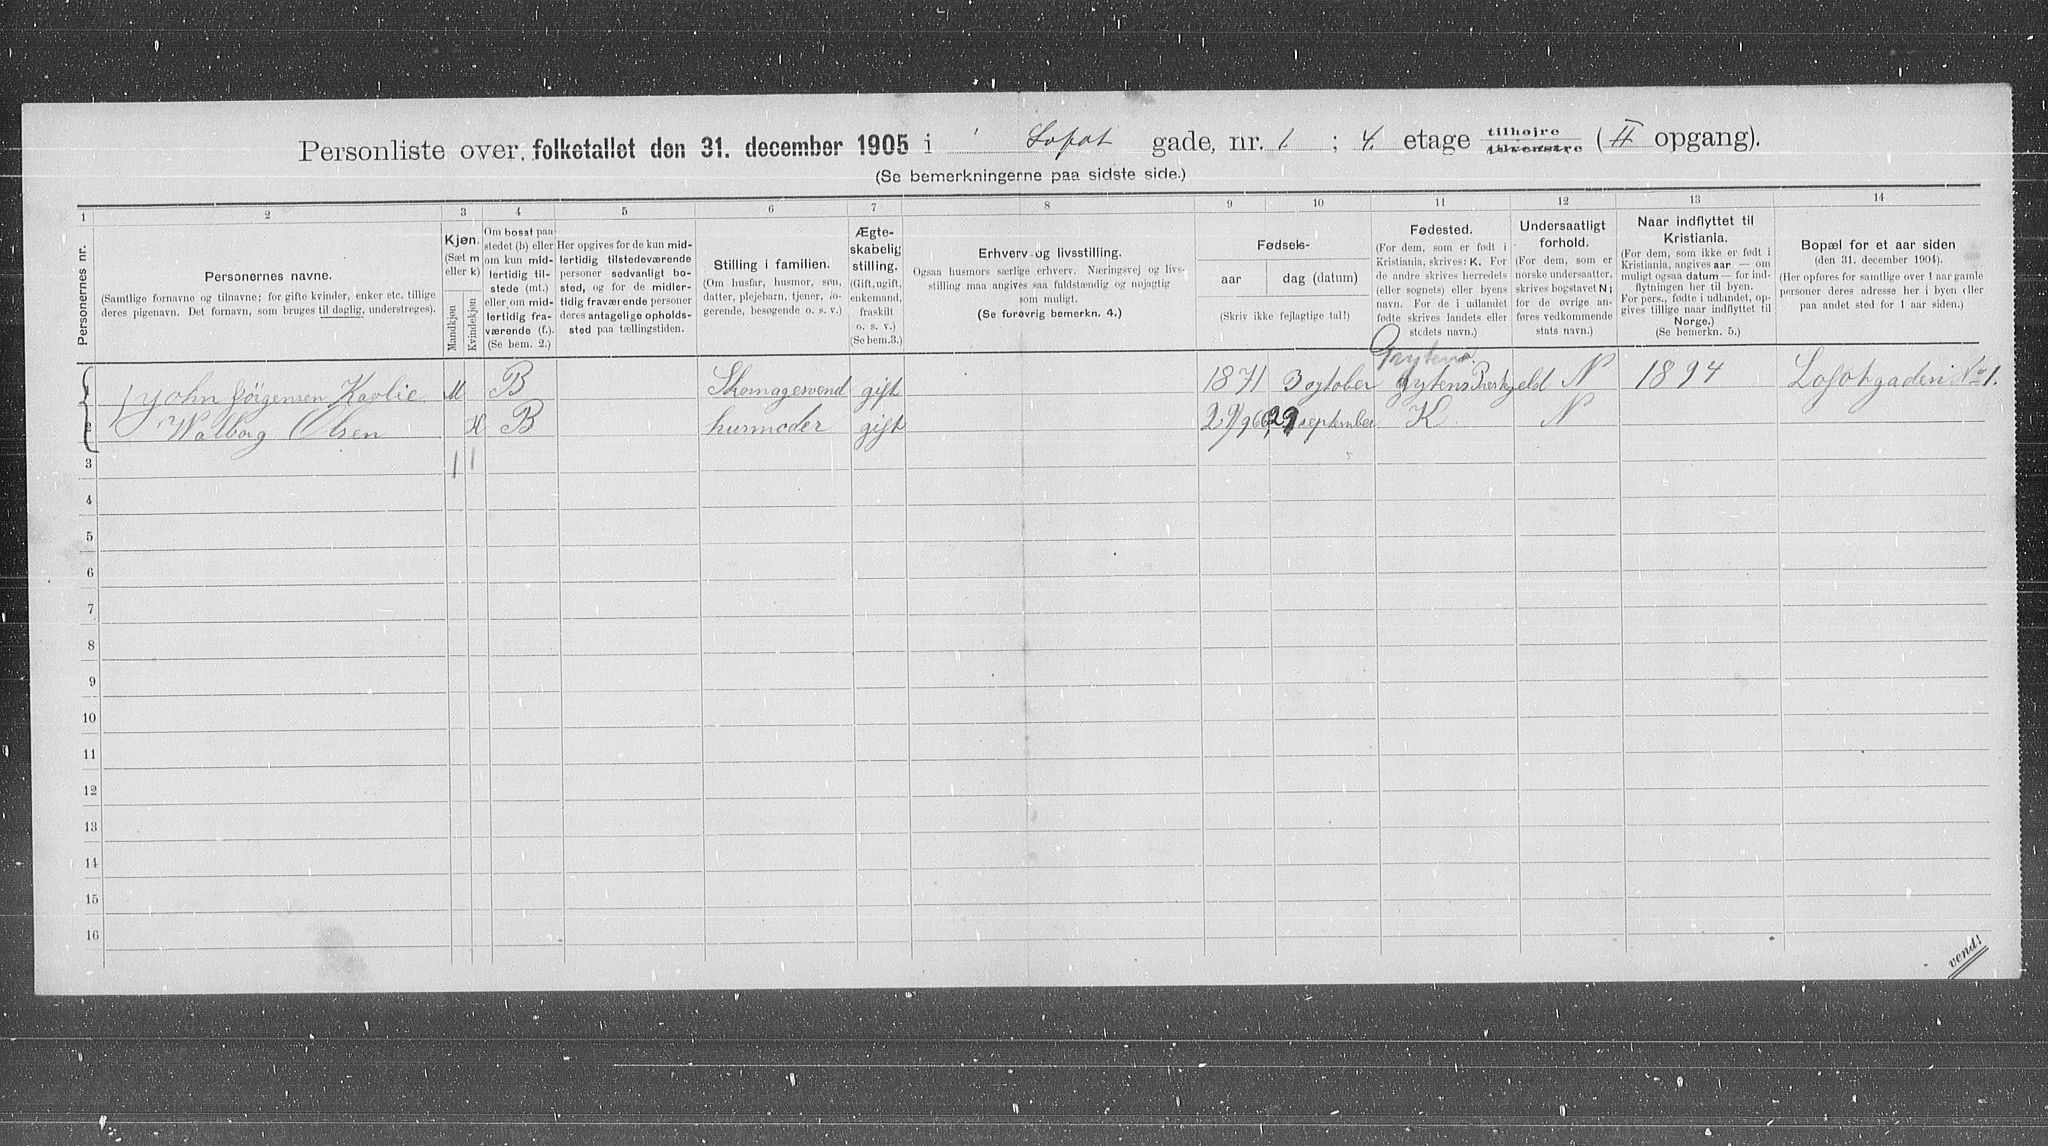 Personliste over folketallet den 31. december 1905 i Lofot gade, nr. 1; 4. etage tilhøjre tilvenstre (II opgang).
(Se bemerkningerne paa sidste side.)
1 2 3 4 5 6 7 8 9 10 11 12 13 14
Personernes nr.
Personernes navne.
(Samtlige fornavne og tilnavne; for gifte kvinder, enker etc. tillige
deres pigenavn. Det fornavn, som bruges til daglig, understreges).
Kjøn.
(Sæt m
eller k)
Mandkjøn
Kvindekjøn
Om bosat paa
stedet (b) eller
om kun mid-
lertidig til-
stede (mt.)
eller om mid-
lertidig fra-
værende (f.).
(Se bem. 2.)
Her opgives for de kun mid-
lertidig tilstedeværende
personer sedvanligt bo-
sted, og for de midler-
tidig fraværende personer
deres antagelige opholds-
sted paa tællingstiden.
Stilling i familien.
(Om husfar, husmor, søn,
datter, plejebarn, tjener, lo-
gerende, besøgende o. s. v.)
Ægte-
skabelig
stilling.
(Gift, ugift,
enkemand,
fraskilt
o. s. v.)
(Se bem.3.)
Erhverv og livsstilling.
Ogsaa husmors særlige erhverv. Næringsvej og livs-
stilling maa angives saa fuldstændig og nøjagtig
som muligt.
(Se forøvrig bemerkn. 4.)
Fødsels-
aar
dag (datum)
(Skriv ikke fejlagtige tal!)
Fødested.
(For dem, som er født i
Kristiania, skrives: K. For
de andre skrives herredets
(eller sognets) eller byens
navn. For de i udlandet
fødte skrives landets eller
stedets navn.)
Undersaatligt
forhold.
(For dem, som er
norske undersaatter,
skrives bogstavet N;
for de øvrige an-
føres vedkommende
stats navn.)
Naar indflyttet til
Kristiania.
(For dem, som ikke er født i
Kristiania, angives aar — om
muligt ogsaa datum — for ind-
flytningen her til byen.
For pers., fødte i udlandet, op-
gives tillige naar indflyttet til
Norge.)
(Se bemerkn. 5.)
Bopæl for et aar siden
(den 31. december 1904).
(Her opføres for samtlige over 1 aar gamle
personer deres adresse her i byen (eller
paa andet sted for 1 aar siden.)
Grytens.
1 John Jörgensen Kavlie M B Skomagesvend gift 1871 3 october Grytens N 1894 Lofotgaden No 1.
2 Walborg Olsen K B husmoder gift 29 september K N
3 1 1
4
5
6
7
8
9
10
11
12
13
14
15
16
vend!